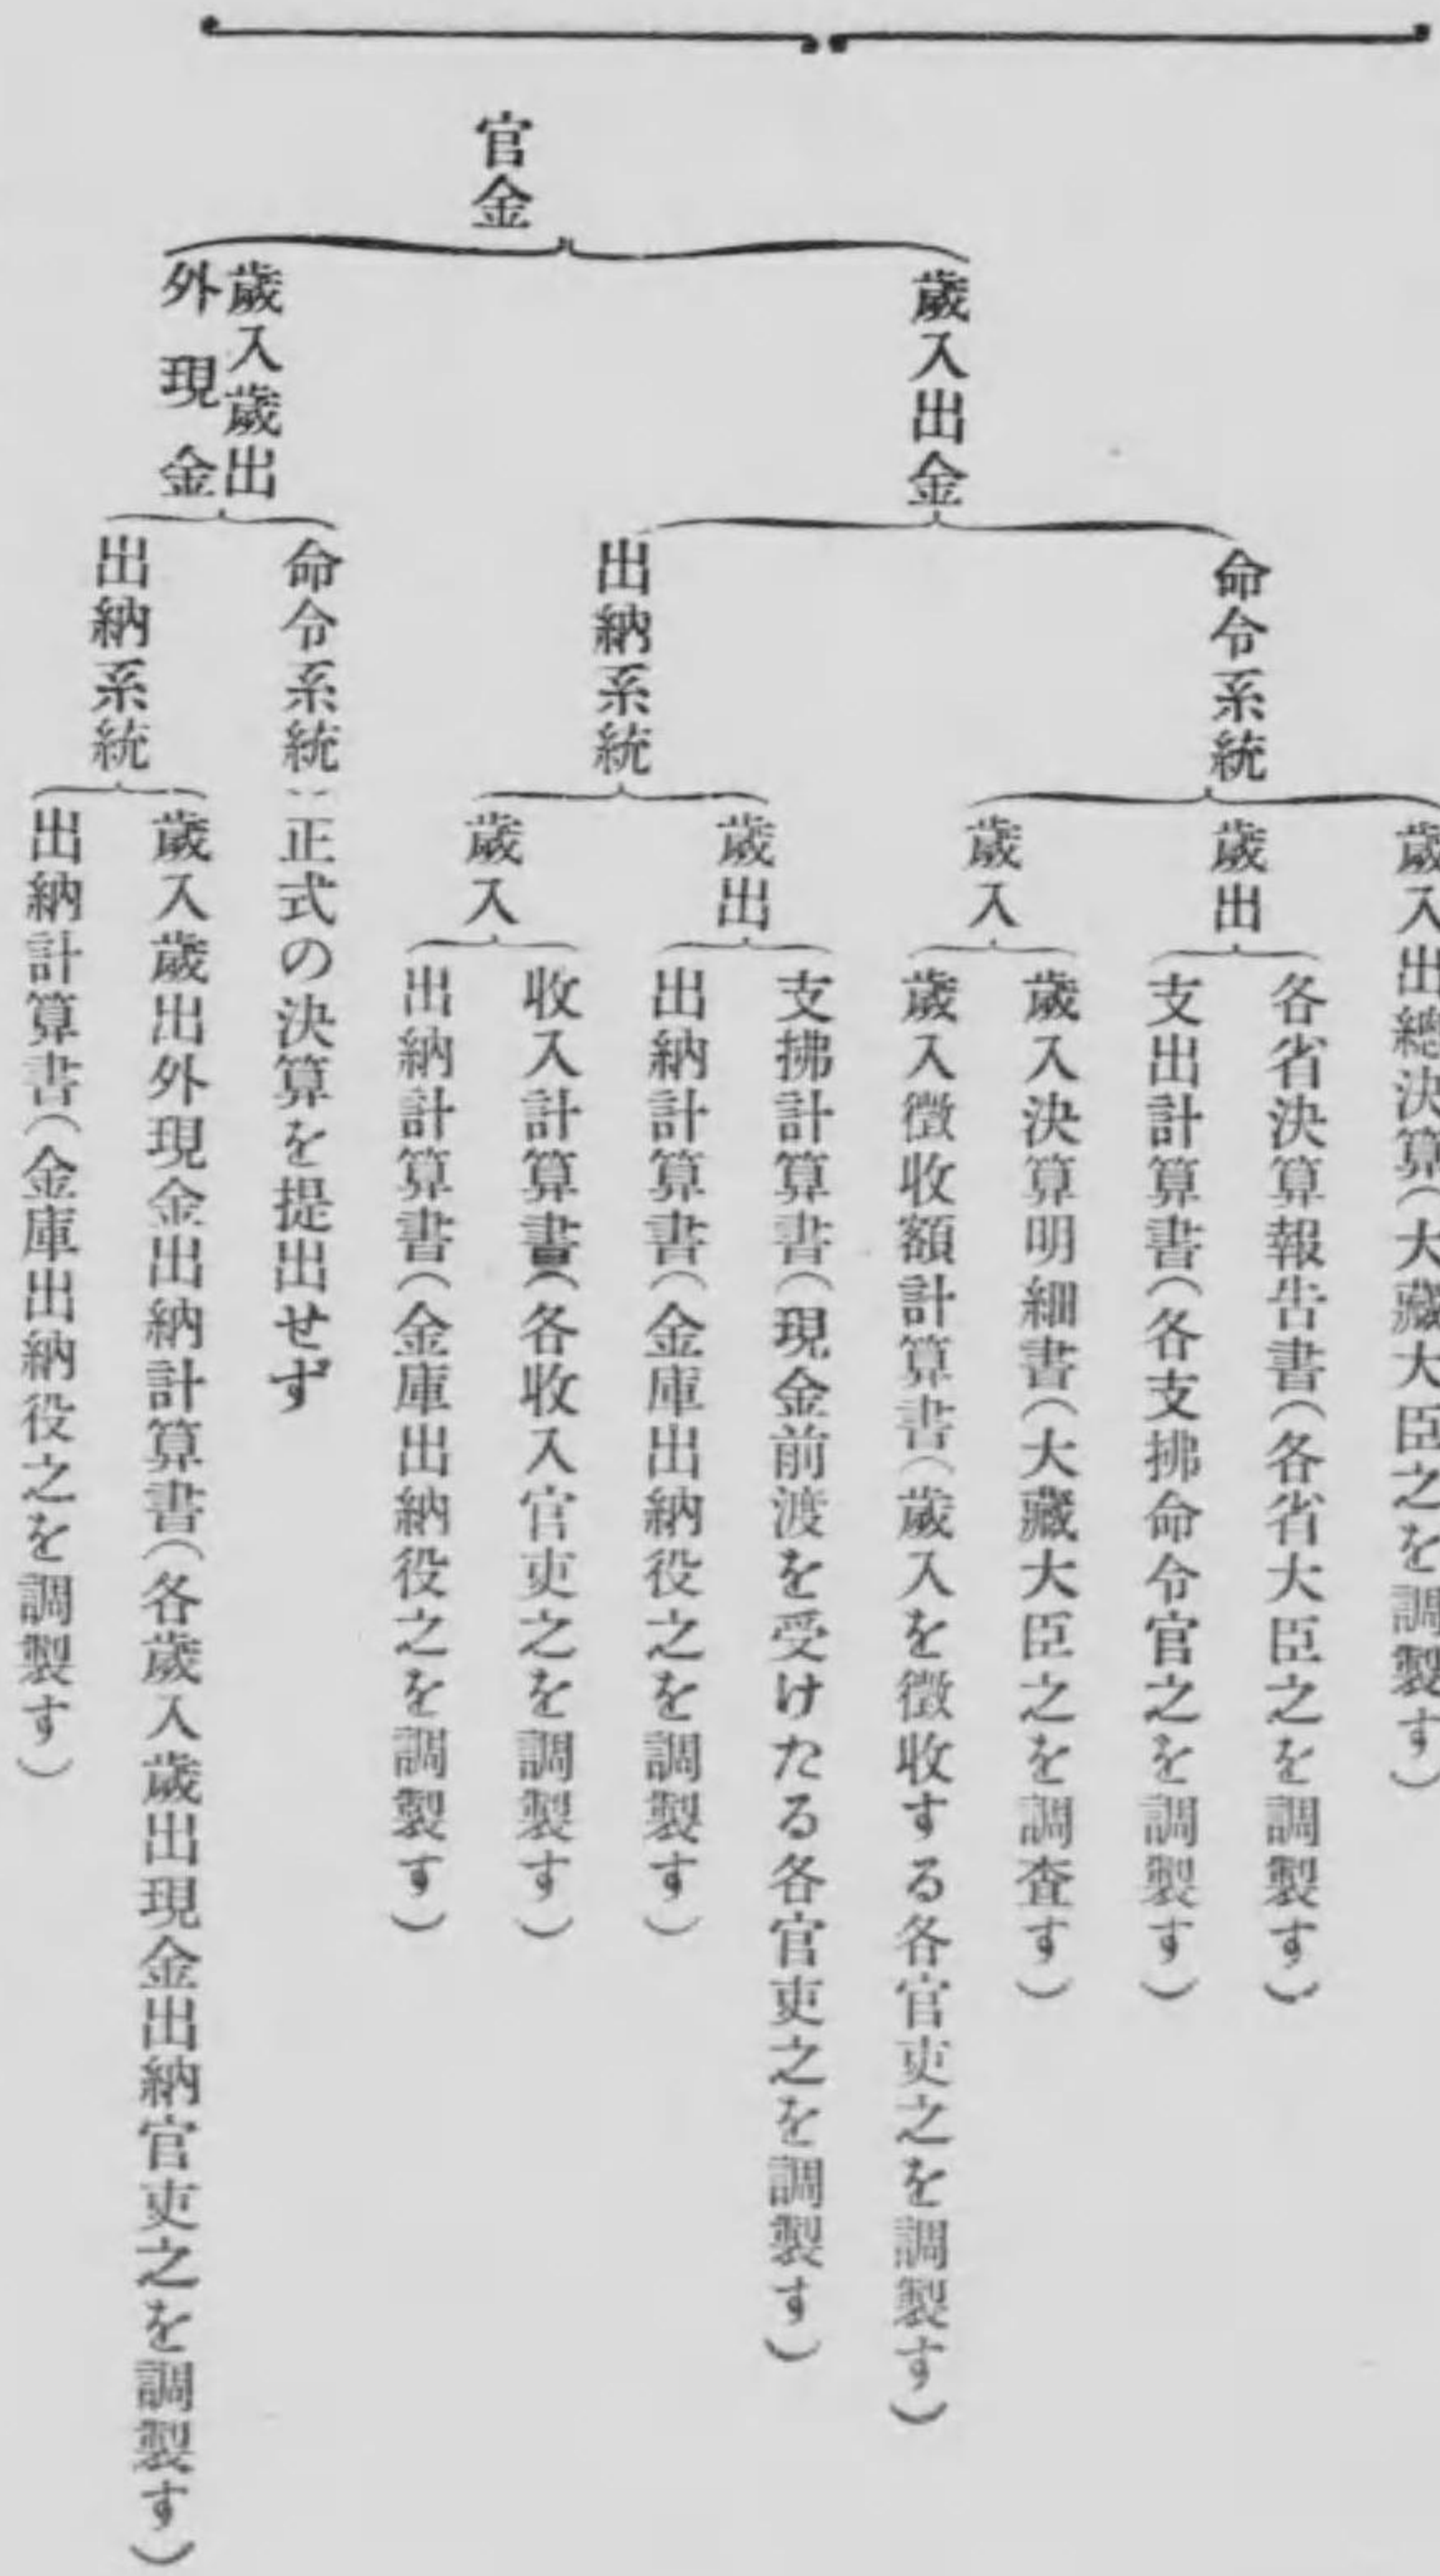 官金
歳入出金
命令系統
歳入出總決算(大藏大臣之を調製す)
歳出
各省決算報告書(各省大臣之を調製す)
支出計算書(各支拂命令官之を調製す)
歳入
歳入決算明細書(大藏大臣之を調査す)
歳入徴收額計算書(歳入を徴收する各官吏之を調製す)
出納系統
歳出
支拂計算書(現金前渡を受けたる各官吏之を調製す)
出納計算書(金庫出納役之を調製す)
歳入
收入計算書(各收入官吏之を調製す)
出納計算書(金庫出納役之を調製す)
歳入歳出
外現金
命令系統‥正式の決算を提出せず
出納系統
歳入歳出外現金出納計算書(各歳入歳出現金出納官吏之を調製す)
出納計算書(金庫出納役之を調製す)